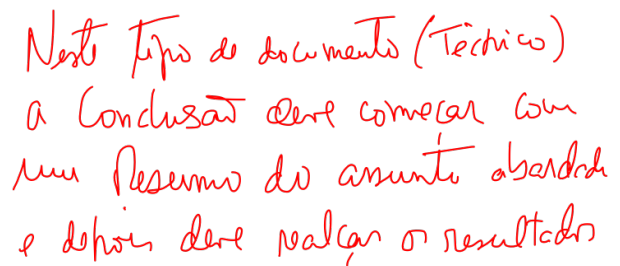 Neste tipo de documento (Técnico)
a Conclusão deve começar com
um Resumo do assunto abordado
e depois deve realçar os resultados